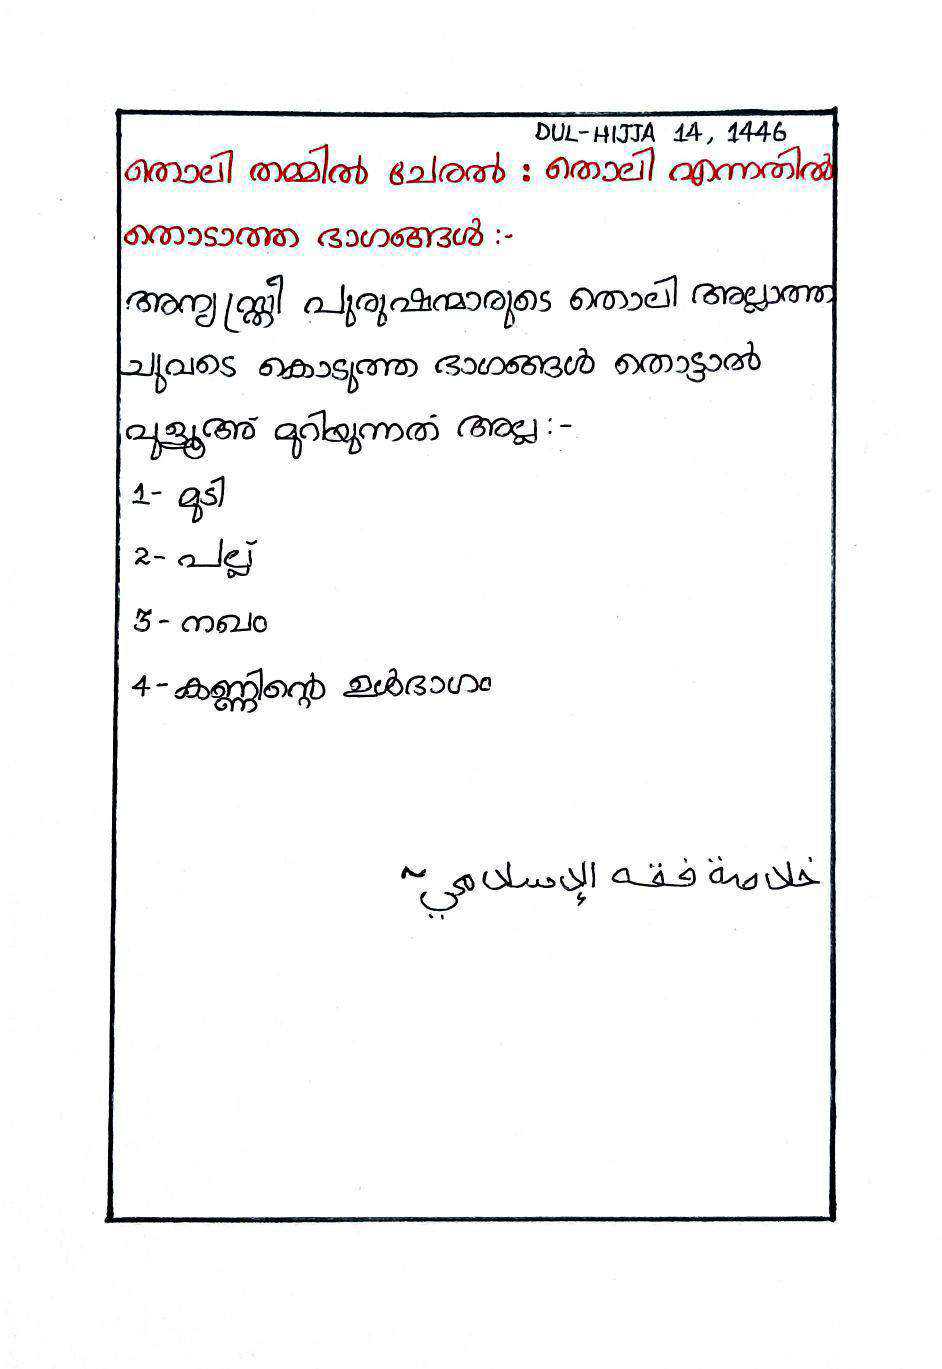 DUL-HIJJA 14, 1446
തൊലി തമ്മിൽ ചേരൽ : തൊലി എന്നതിൽ
തൊടാത്ത ഭാഗങ്ങൾ :-
അന്യ സ്ത്രീ പുരുഷന്മാരുടെ തൊലി അല്ലാത്ത
ചുവടെ കൊടുത്ത ഭാഗങ്ങൾ തൊട്ടാൽ
വുളൂഅ് മുറിയുന്നത് അല്ല :-
1- മുടി
2- പല്ല്
3- നഖം
4- കണ്ണിന്റെ ഉൾഭാഗം
خلاصة فقه الإسلامي~